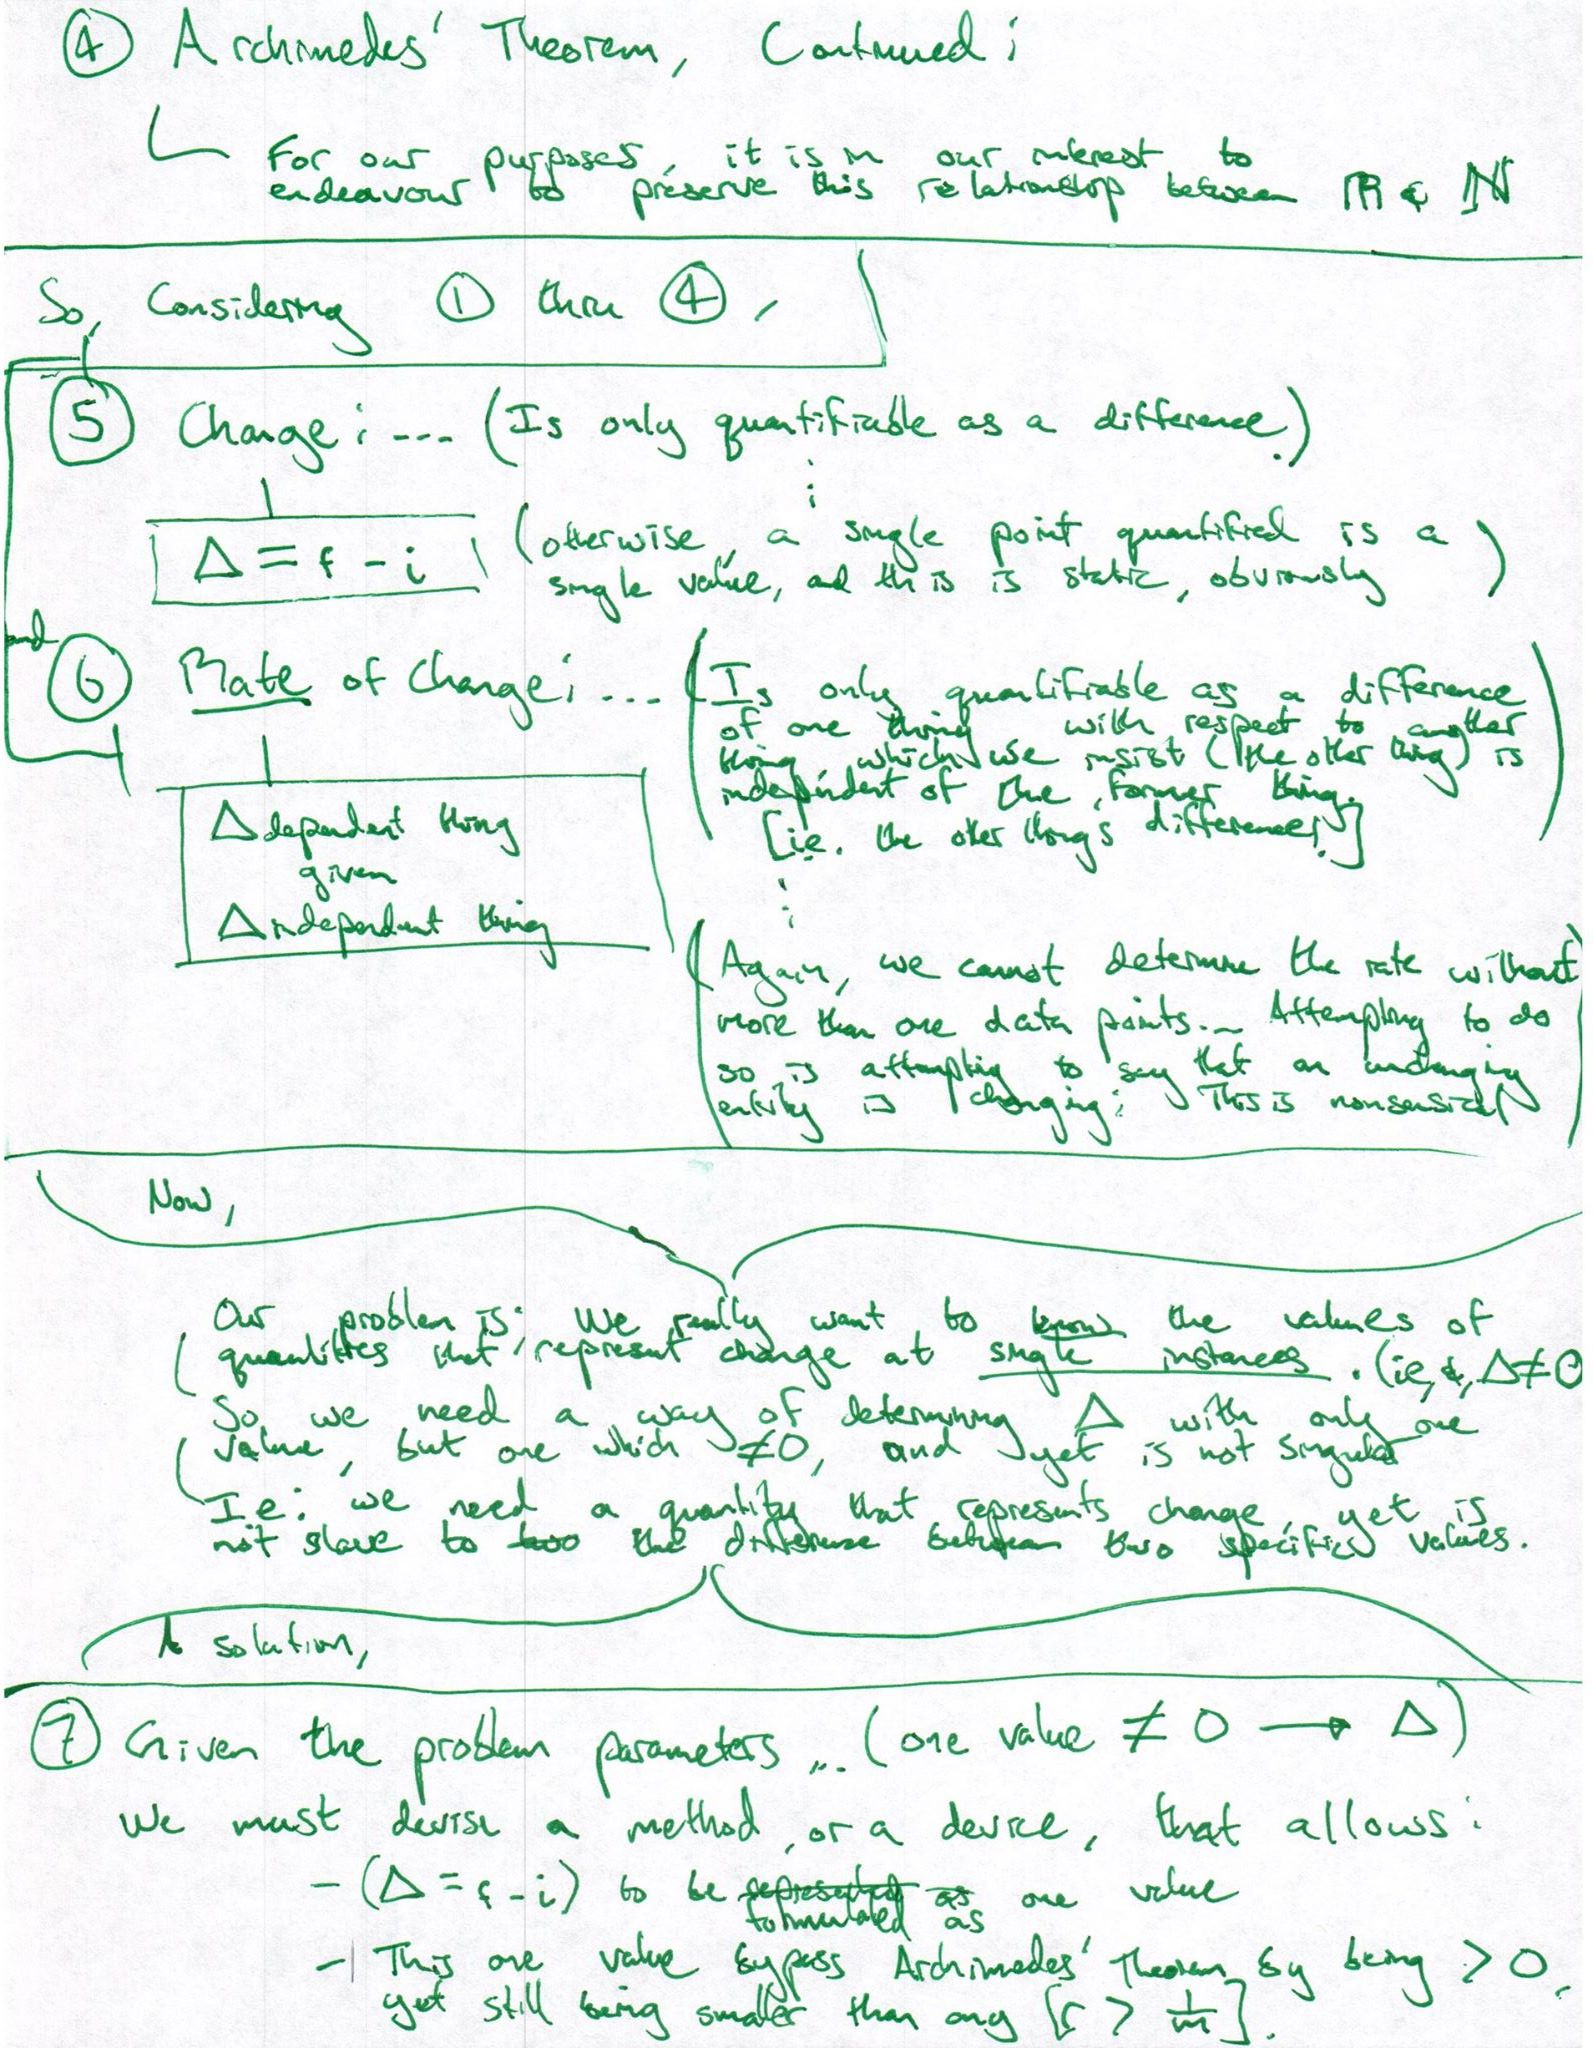 ④ Archimedes' Theorem, Continued:
For our purposes, it is in our interest to
endeavour to preserve this relationship between ℝ & ℕ
So, Considering ① thru ④,
⑤ Change: --- (Is only quantifiable as a difference.)
Δ = f - i
(otherwise, a single point quantified is a
single value, and this is static, obviously)
and
⑥ Rate of Change: ... (Is only quantifiable as a difference
of one thing with respect to another
thing, which we insist (the other thing) is
independent of the former thing.
[i.e. the other thing's difference.]
Δdependent thing
given
Δindependent thing
(Again, we cannot determine the rate without
more than one data points. Attempting to do
so is attempting to say that an unchanging
entity is changing: This is nonsensical)
Now,
Our problem is: We really want to know the values of
quantities that represent change at single instances. (ie, &, Δ≠0
So we need a way of determining Δ with only one
value, but one which ≠0, and yet is not singular
I.e: we need a quantity that represents change, yet is
not slave to too the difference between two specific values.
A solution,
⑦ Given the problem parameters... (one value ≠ 0 → Δ)
We must devise a method, or a device, that allows:
- (Δ = f - i) to be represented as one value
formulated as
- This one value bypass Archimedes' Theorem by being > 0,
yet still being smaller than any [r > 1/m].